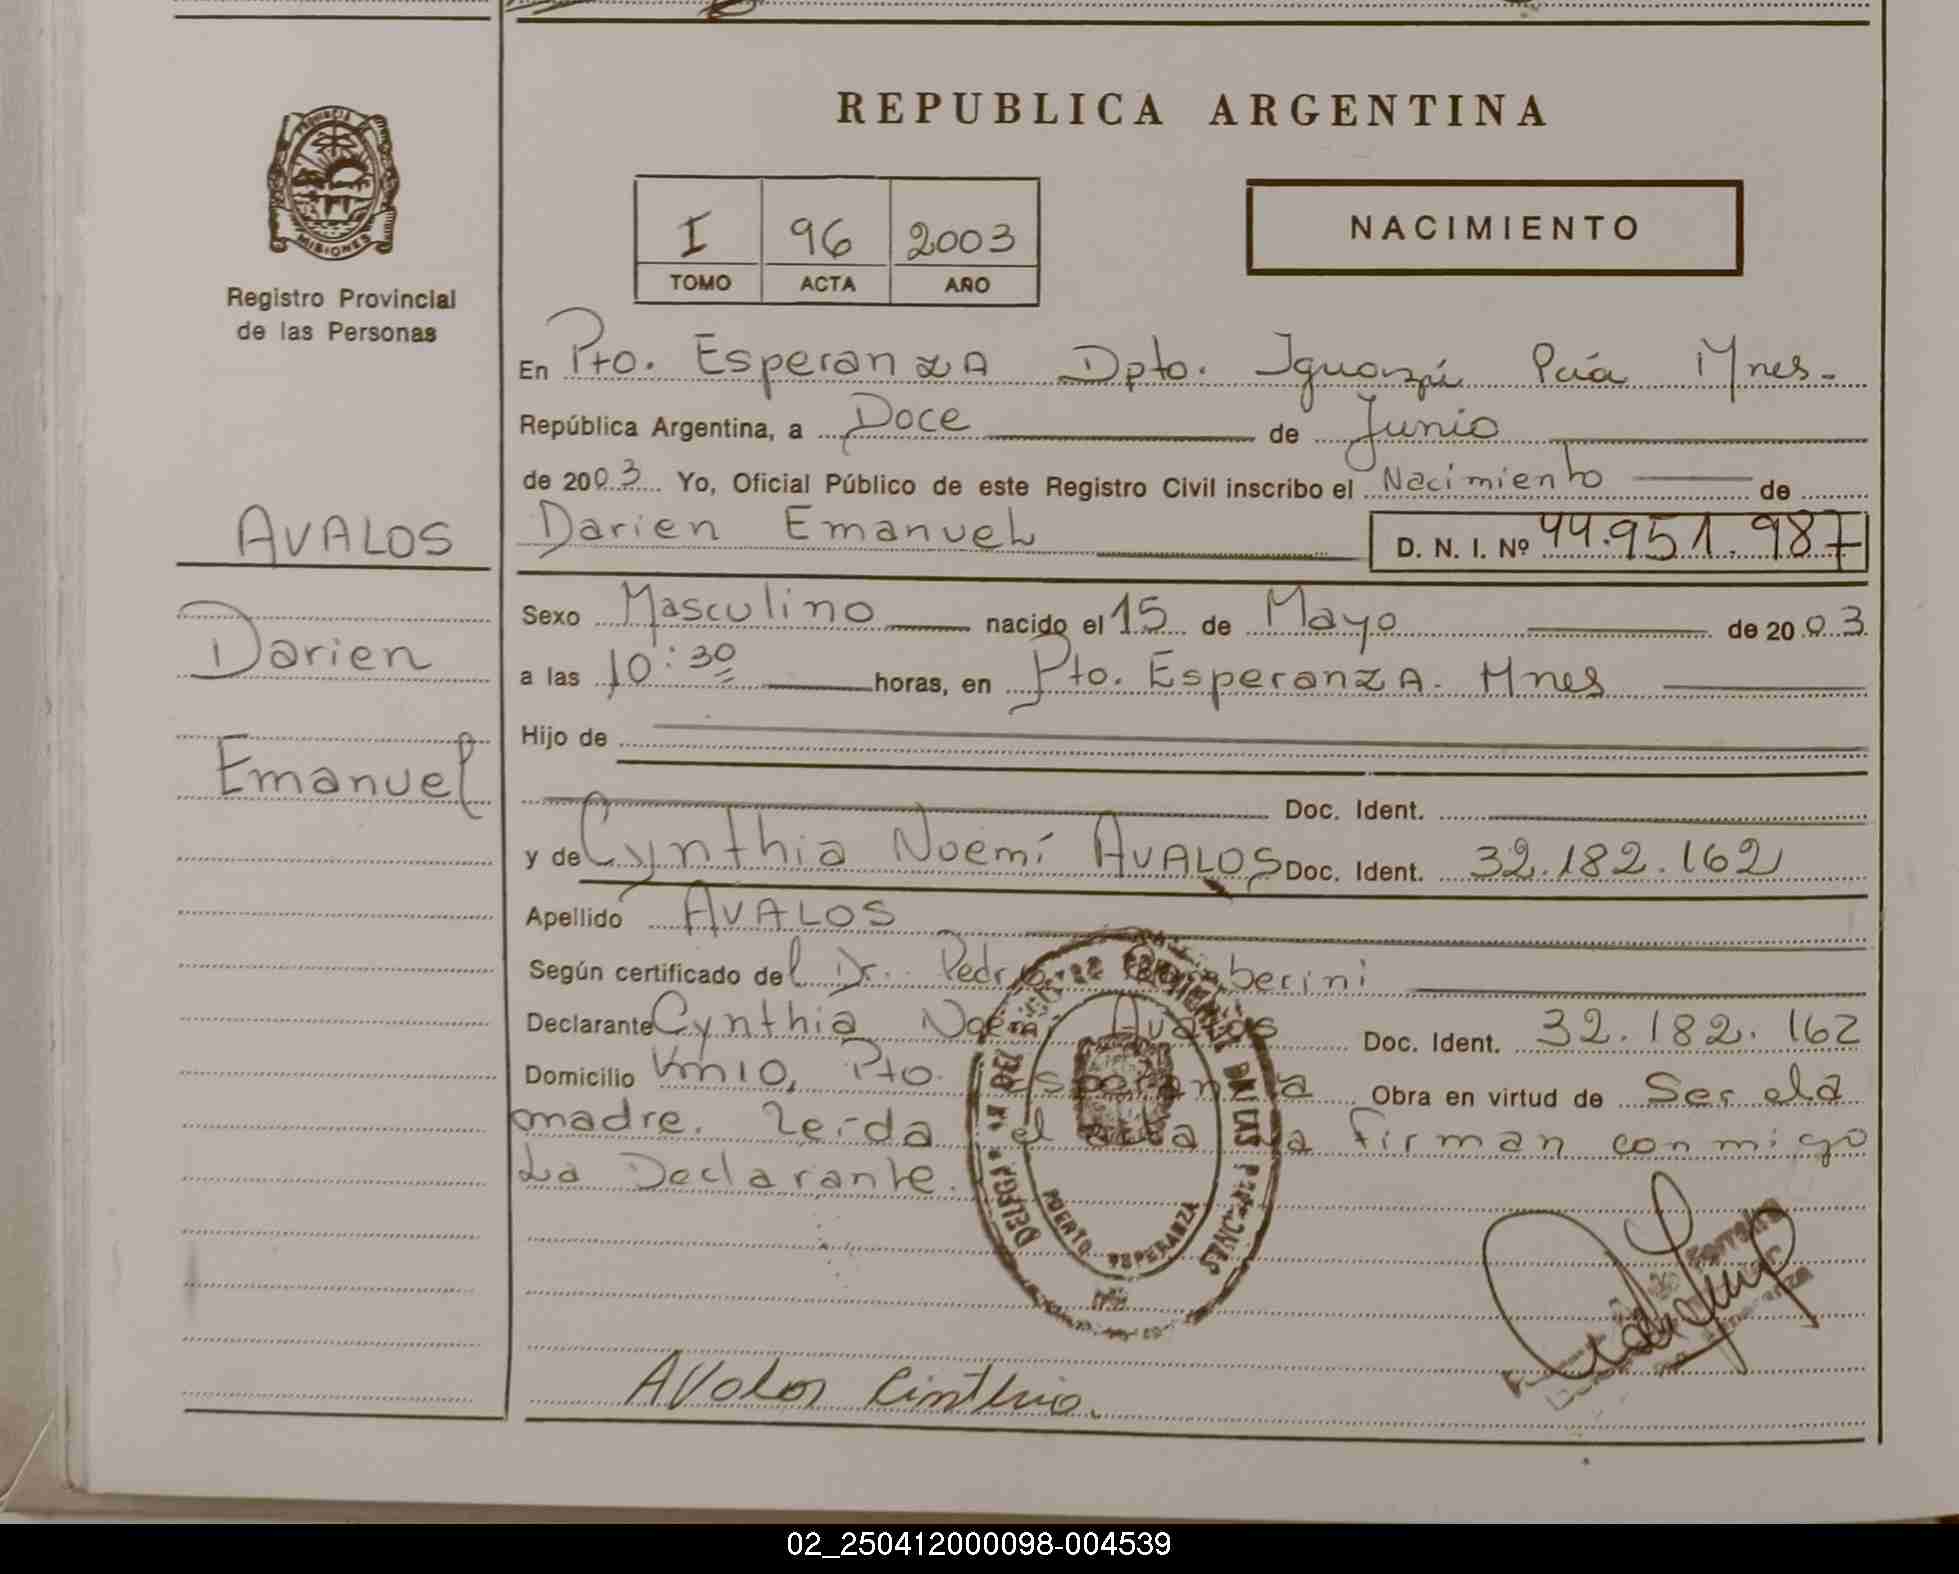 REPUBLICA ARGENTINA
PROVINCIA DE
MISIONES
Registro Provincial
de las Personas
I 96 2003
TOMO ACTA AÑO
NACIMIENTO
En Pto. Esperanza Dpto. Iguazú Pcia Mnes.
República Argentina, a Doce de Junio
de 2003 Yo, Oficial Público de este Registro Civil inscribo el Nacimiento de
AVALOS
Darien Emanuel D. N. I. Nº 44.951.987
Darien
Emanuel
Sexo Masculino nacido el 15 de Mayo de 2003
a las 10:30 horas, en Pto. Esperanza. Mnes
Hijo de
Doc. Ident.
y de Cynthia Noemí AVALOS Doc. Ident. 32.182.162
Apellido AVALOS
Según certificado del Dr. Pedro
Declarante Cynthia Noemí Avalos Doc. Ident. 32.182.162
Domicilio Km 10, Pto. Esperanza Obra en virtud de Ser ela
madre. Leída el acta la firman conmigo
La Declarante.
PUERTO ESPERANZA
Avalos Cinthia.
02_250412000098-004539